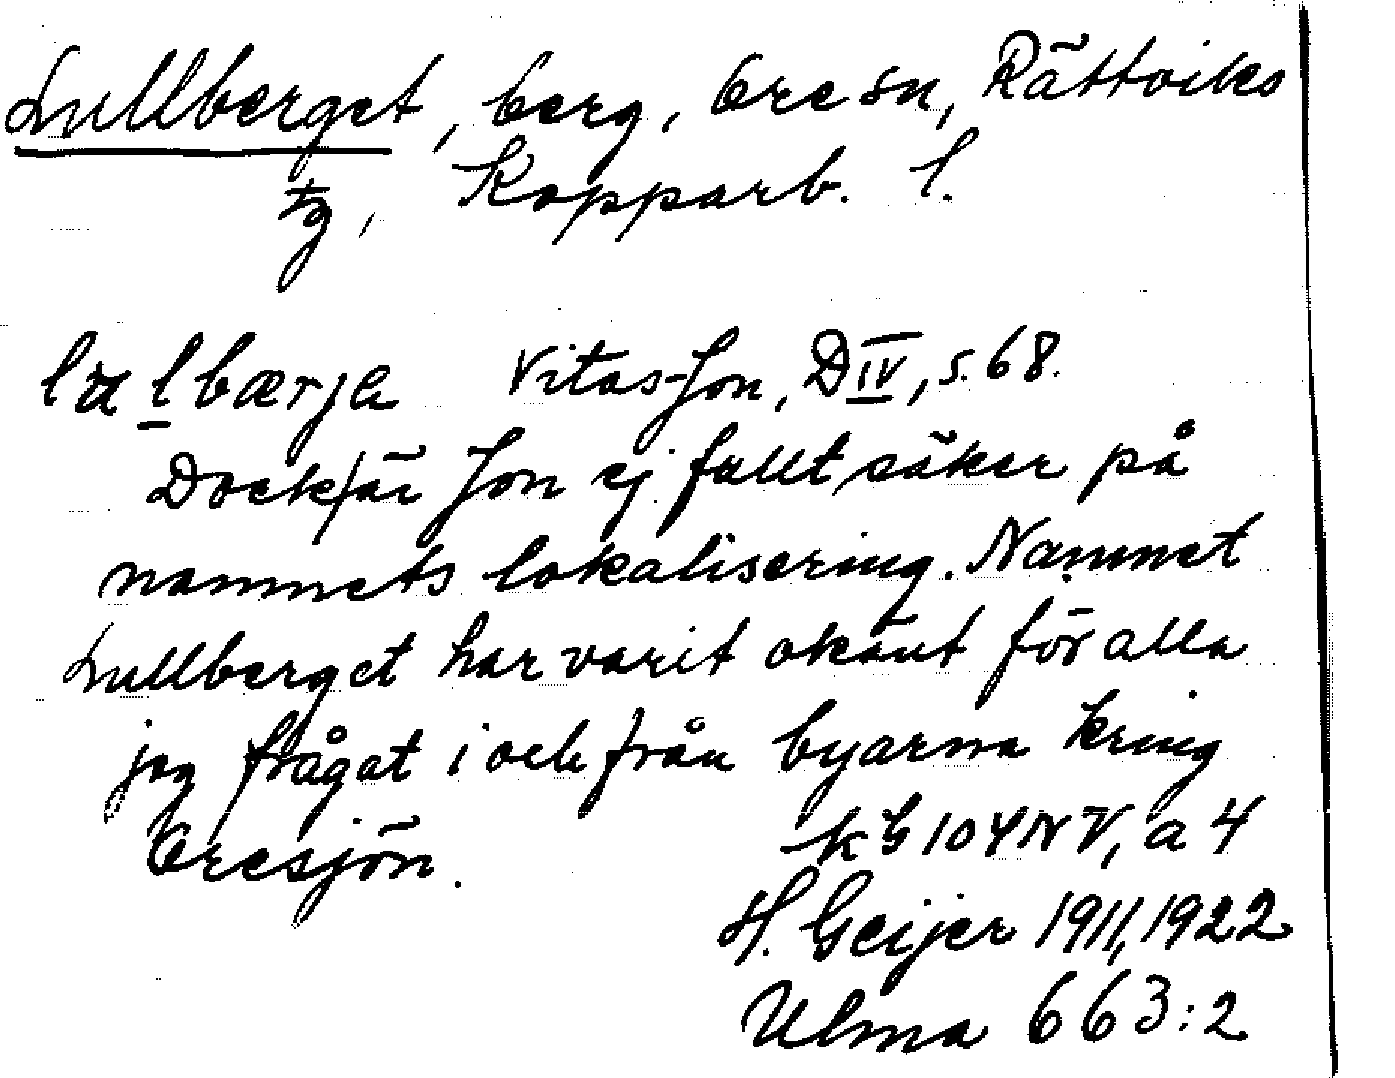 Lullberget, berg, Ore sn, Rättviks
tg, Kopparb. l.
lulbærja Vitas-Jon, D IV, s. 68.
Dock är Jon ej fullt säker på
namnets lokalisering. Namnet
Lullberget har varit okänt för alla
jag frågat i och från byarna kring
Oresjön.
kG 104 NV, a 4
H. Geijer 1911, 1922
Ulma 663:2